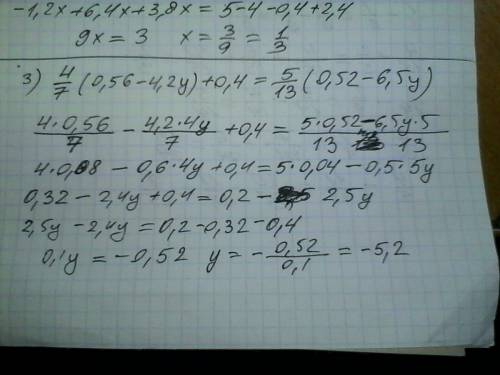 -1,2x+6,4x+3,8x = 5-4-0,4+2,4
9x = 3 x = 3/9 = 1/3
3) 4/7 (0,56-4,2y)+0,4 = 5/13 (0,52-6,5y)
4·0,56/7 - 4,2·4y/7 +0,4 = 5·0,52/13 - 6,5y·5/13
4·0,08 - 0,6·4y+0,4=5·0,04-0,5·5y
0,32 - 2,4y+0,4=0,2- 2,5y
2,5y -2,4y =0,2-0,32-0,4
0,1y = -0,52 y = - 0,52/0,1 = -5,2